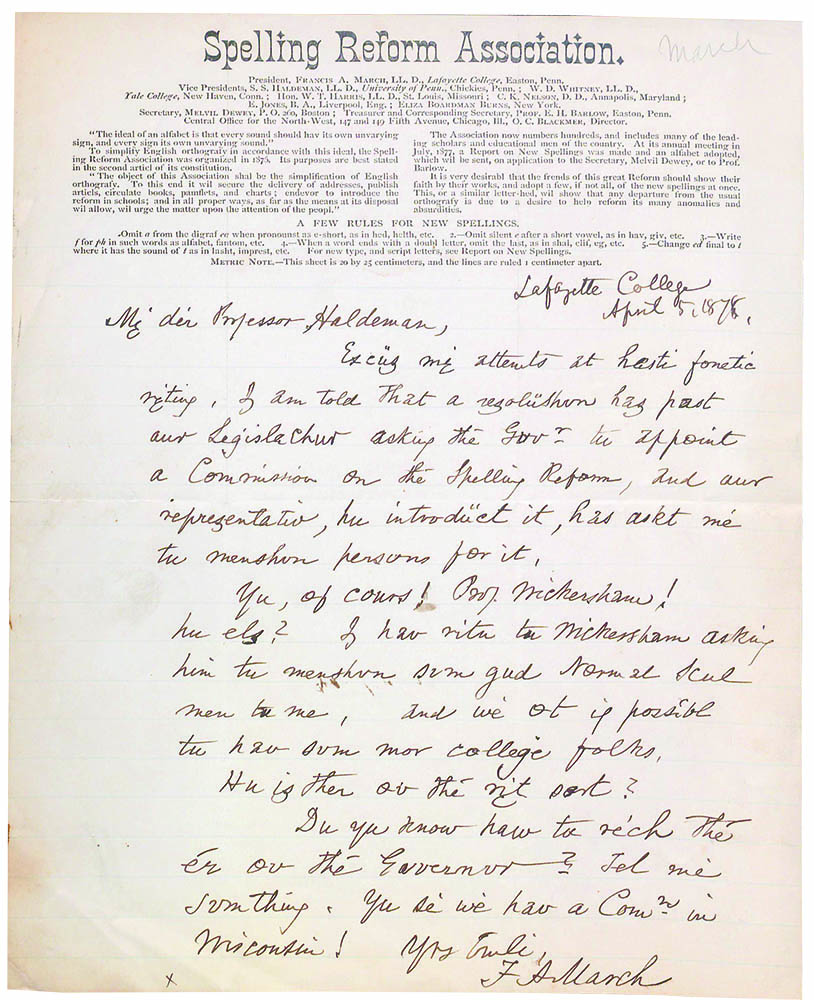 Spelling Reform Association.
March
President, FRANCIS A. MARCH, LL. D., Lafayette College, Easton, Penn.
Vice Presidents, S. S. HALDEMAN, LL. D., University of Penn., Chickies, Penn. ; W. D. WHITNEY, LL. D.,
Yale College, New Haven, Conn. ; Hon. W. T. HARRIS, LL. D., St. Louis, Missouri ; C. K. NELSON, D. D., Annapolis, Maryland ;
E. JONES, B. A., Liverpool, Eng. ; ELIZA BOARDMAN BURNS, New York.
Secretary, MELVIL DEWEY, P. O. 260, Boston ; Treasurer and Corresponding Secretary, PROF. E. H. BARLOW, Easton, Penn.
Central Office for the North-West, 147 and 149 Fifth Avenue, Chicago, Ill., O. C. BLACKMER, Director.
"The ideal of an alfabet is that every sound should hav its own unvarying
sign, and every sign its own unvarying sound."
To simplify English orthografy in accordance with this ideal, the Spell-
ing Reform Association was organized in 1876. Its purposes are best stated
in the second articl of its constitution.
"The object of this Association shal be the simplification of English
orthografy. To this end it wil secure the delivery of addresses, publish
articls, circulate books, pamflets, and charts ; endevor to introduce the
reform in schools; and in all proper ways, as far as the means at its disposal
wil allow, wil urge the matter upon the attention of the peopl."
The Association now numbers hundreds, and includes many of the lead-
ing scholars and educational men of the country. At its annual meeting in
July, 1877, a Report on New Spellings was made and an alfabet adopted,
which wil be sent, on application to the Secretary, Melvil Dewey, or to Prof.
Barlow.
It is very desirabl that the frends of this great Reform should show their
faith by their works, and adopt a few, if not all, of the new spellings at once.
This, or a similar letter-hed, wil show that any departure from the usual
orthografy is due to a desire to help reform its many anomalies and
absurdities.
A FEW RULES FOR NEW SPELLINGS.
1.—Omit a from the digraf ea when pronounst as e-short, as in hed, helth, etc. 2.—Omit silent e after a short vowel, as in hav, giv, etc. 3.—Write
f for ph in such words as alfabet, fantom, etc. 4.—When a word ends with a doubl letter, omit the last, as in shal, clif, eg, etc. 5.—Change ed final to t
where it has the sound of t as in lasht, imprest, etc. For new type, and script letters, see Report on New Spellings.
METRIC NOTE.—This sheet is 20 by 25 centimeters, and the lines are ruled 1 centimeter apart.
Lafayette College
April 5, 1878.
My dér Professor Haldeman,
Excüz my attemts at hasti fonetic
ryting. I am told that a rezolüshon haz past
aur Legislachur asking thé Guvr tu appoint
a Commission on thé Spelling Reform, and aur
reprezentativ, hu introdüct it, has askt mé
tu menshon persons for it.
Yu, of cours! Prof. Wickersham!
hu els? I hav ritn tu Wickersham asking
him tu menshon sum gud Normal Scul
men tu me, and wé ot if possibl
tu hav sum mor college folks.
Hu iz ther ov thé ryt sort?
Du yu know haw tu réch thé
ér ov thé Guvernor? Tel mé
sumthing. Yu sé wé hav a Comn in
Wisconsin! Yrs truli,
F A March
x